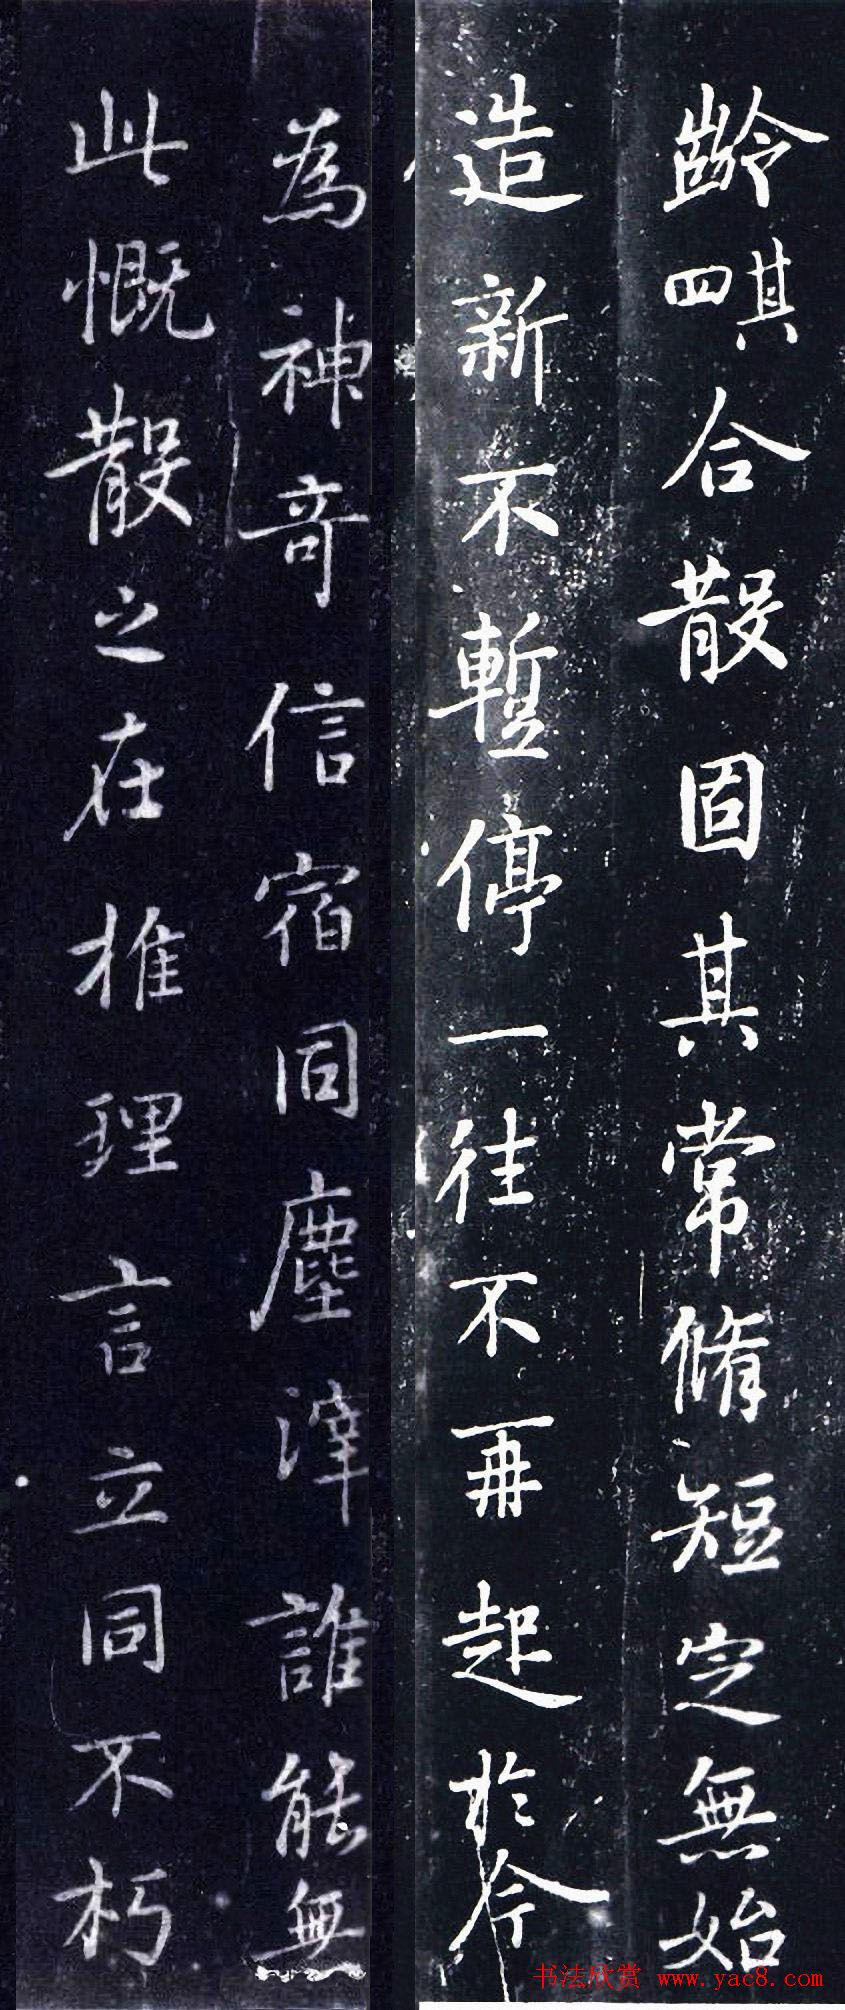 齡 其四 合散固其常脩短定無始
造新不暫停一往不再起於今
為神奇信宿同塵滓誰能無
此慨散之在推理言立同不朽
书法欣赏 www.yac8.com